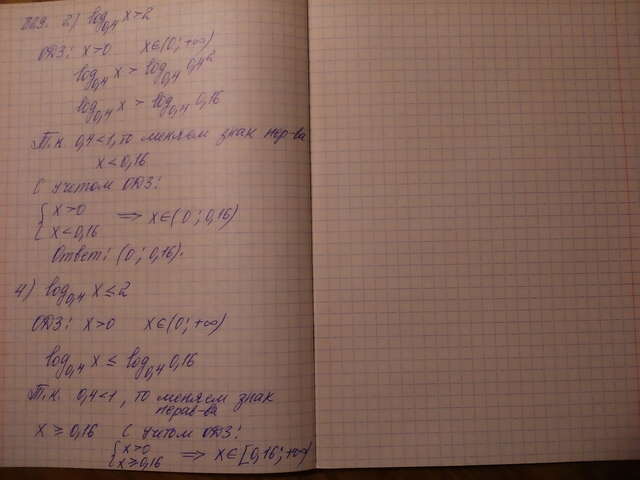 229. 2) log₀,₄ x > 2
ОДЗ: x>0 x∈(0; +∞)
log₀,₄ x > log₀,₄ 0,4²
log₀,₄ x > log₀,₄ 0,16
Т.к. 0,4<1, то меняем знак нер-ва
x<0,16
С учетом ОДЗ:
{ x>0
{ x<0,16 ⟹ x∈(0; 0,16)
Ответ: (0; 0,16).
4) log₀,₄ x ≤ 2
ОДЗ: x>0 x∈(0; +∞)
log₀,₄ x ≤ log₀,₄ 0,16
Т.к. 0,4<1, то меняем знак
нерав-ва
x ≥ 0,16 С учетом ОДЗ:
{ x>0
{ x≥0,16 ⟹ x∈[0,16; +∞)